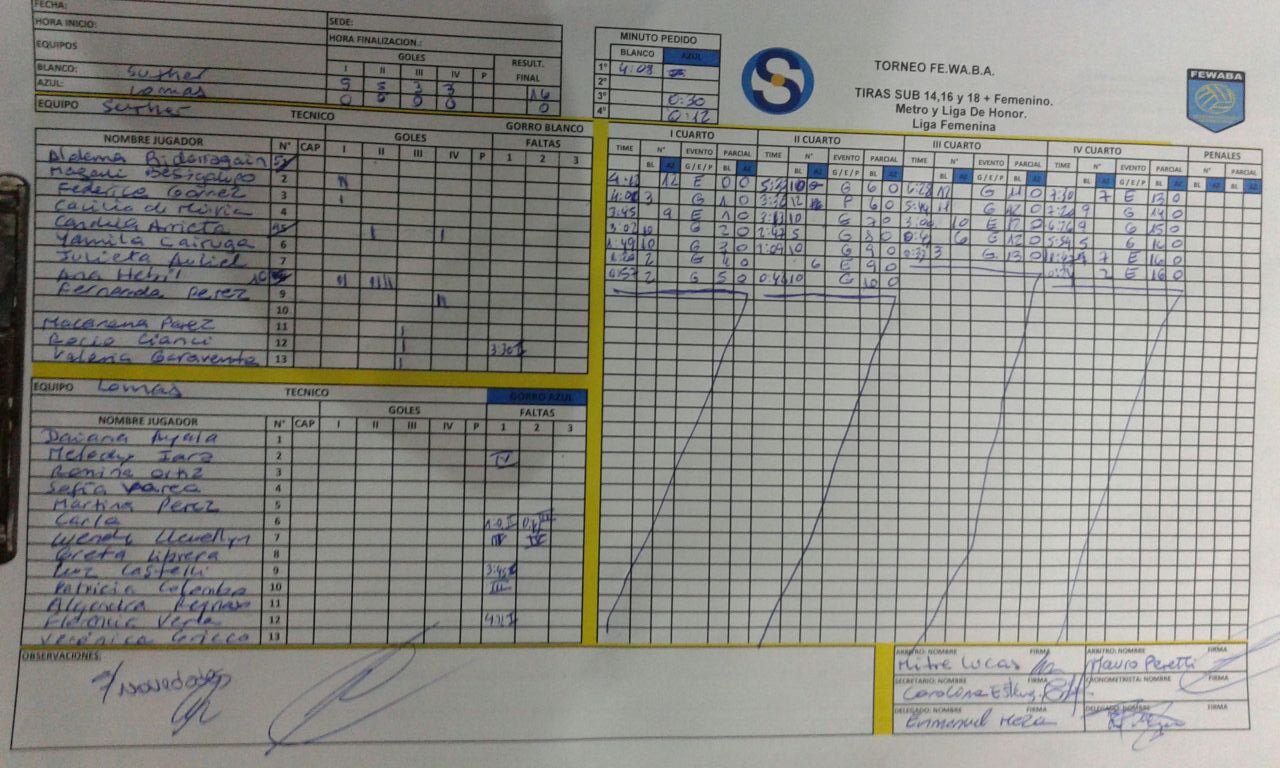 FECHA:
HORA INICIO:
SEDE:
HORA FINALIZACION.:
EQUIPOS
GOLES
RESULT. FINAL
I II III IV P
BLANCO: Suther 5 5 3 3 16
AZUL: Lomas 0 0 0 0 0
MINUTO PEDIDO
BLANCO AZUL
1° 4:08
2°
3° 0:30
4° 0:12
S
TORNEO FE.WA.B.A.
TIRAS SUB 14,16 y 18 + Femenino.
Metro y Liga De Honor.
Liga Femenina
FEWABA
EQUIPO Suther TECNICO
GORRO BLANCO
NOMBRE JUGADOR N° CAP GOLES FALTAS
I II III IV P 1 2 3
2
Federica Gomez 3
4
Candela Arrieta
6
Julieta 7
Ana
Fernanda Perez 9
10
Macarena Perez 11
Rocio Cianci 12 3:30
Valeria 13
I CUARTO II CUARTO III CUARTO IV CUARTO PENALES
TIME N° EVENTO PARCIAL TIME N° EVENTO PARCIAL TIME N° EVENTO PARCIAL TIME N° EVENTO PARCIAL N° PARCIAL
BL AZ G/E/P BL AZ BL AZ G/E/P BL AZ BL AZ G/E/P BL AZ BL AZ G/E/P BL AZ BL AZ BL AZ
12 E 0 0 G 6 0 G 11 0 7:30 7 E 13 0
3 G 1 0 3:30 12 P 6 0 11 G 12 0 7:20 9 G 14 0
3:45 9 E 1 0 10 G 7 0 10 E 12 0 6:26 9 G 15 0
3:02 10 G 2 0 2:47 5 G 8 0 6 E 12 0 5:54 5 G 16 0
1:49 10 G 3 0 1:09 10 G 9 0 3 G 13 0 7 E 16 0
2 G 4 0 6 E 9 0 2 E 16 0
0:57 2 G 5 0 0:46 10 G 10 0
EQUIPO Lomas TECNICO
GORRO AZUL
NOMBRE JUGADOR N° CAP GOLES FALTAS
I II III IV P 1 2 3
Daiana Ayala 1
Melody Jara 2 IV
Romina Ortiz 3
Sofia Varea 4
Martina Perez 5
Carla 6
Wendy Llewellyn 7 IV IV
Greta Liprera 8
Luz Castelli 9 3:45 I
Patricia Colombo 10 III
Alejandra 11
Florencia Vera 12
Verónica Gricco 13
OBSERVACIONES:
ARBITRO: NOMBRE FIRMA ARBITRO: NOMBRE FIRMA
Mitre Lucas Mauro Peretti
SECRETARIO: NOMBRE FIRMA CRONOMETRISTA: NOMBRE FIRMA
Carolina
DELEGADO: NOMBRE FIRMA DELEGADO: NOMBRE FIRMA
Emmanuel Meza